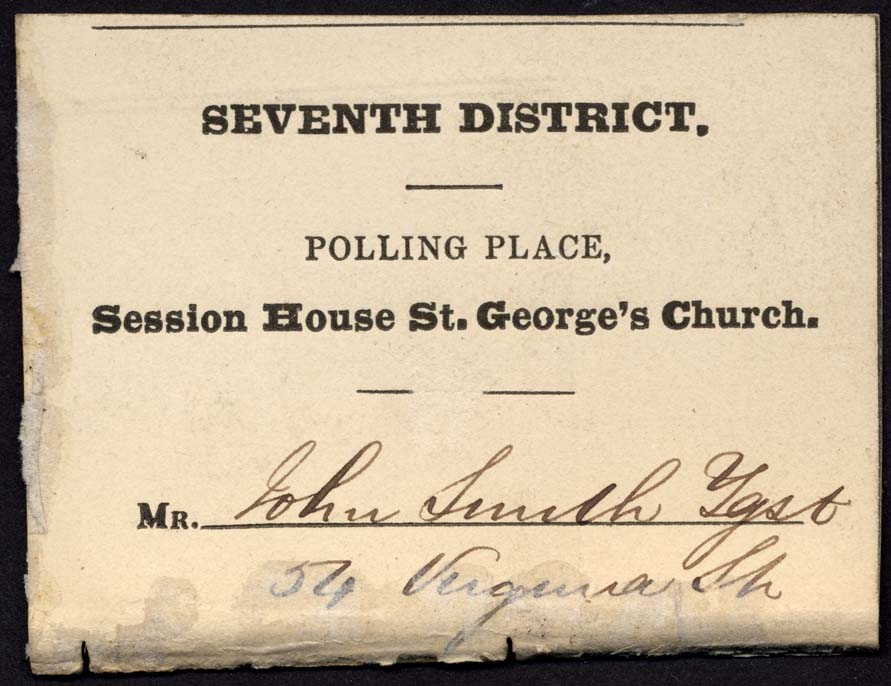 SEVENTH DISTRICT.
POLLING PLACE,
Session House St. George's Church.
MR. John Smith Ygst
54 Virginia St